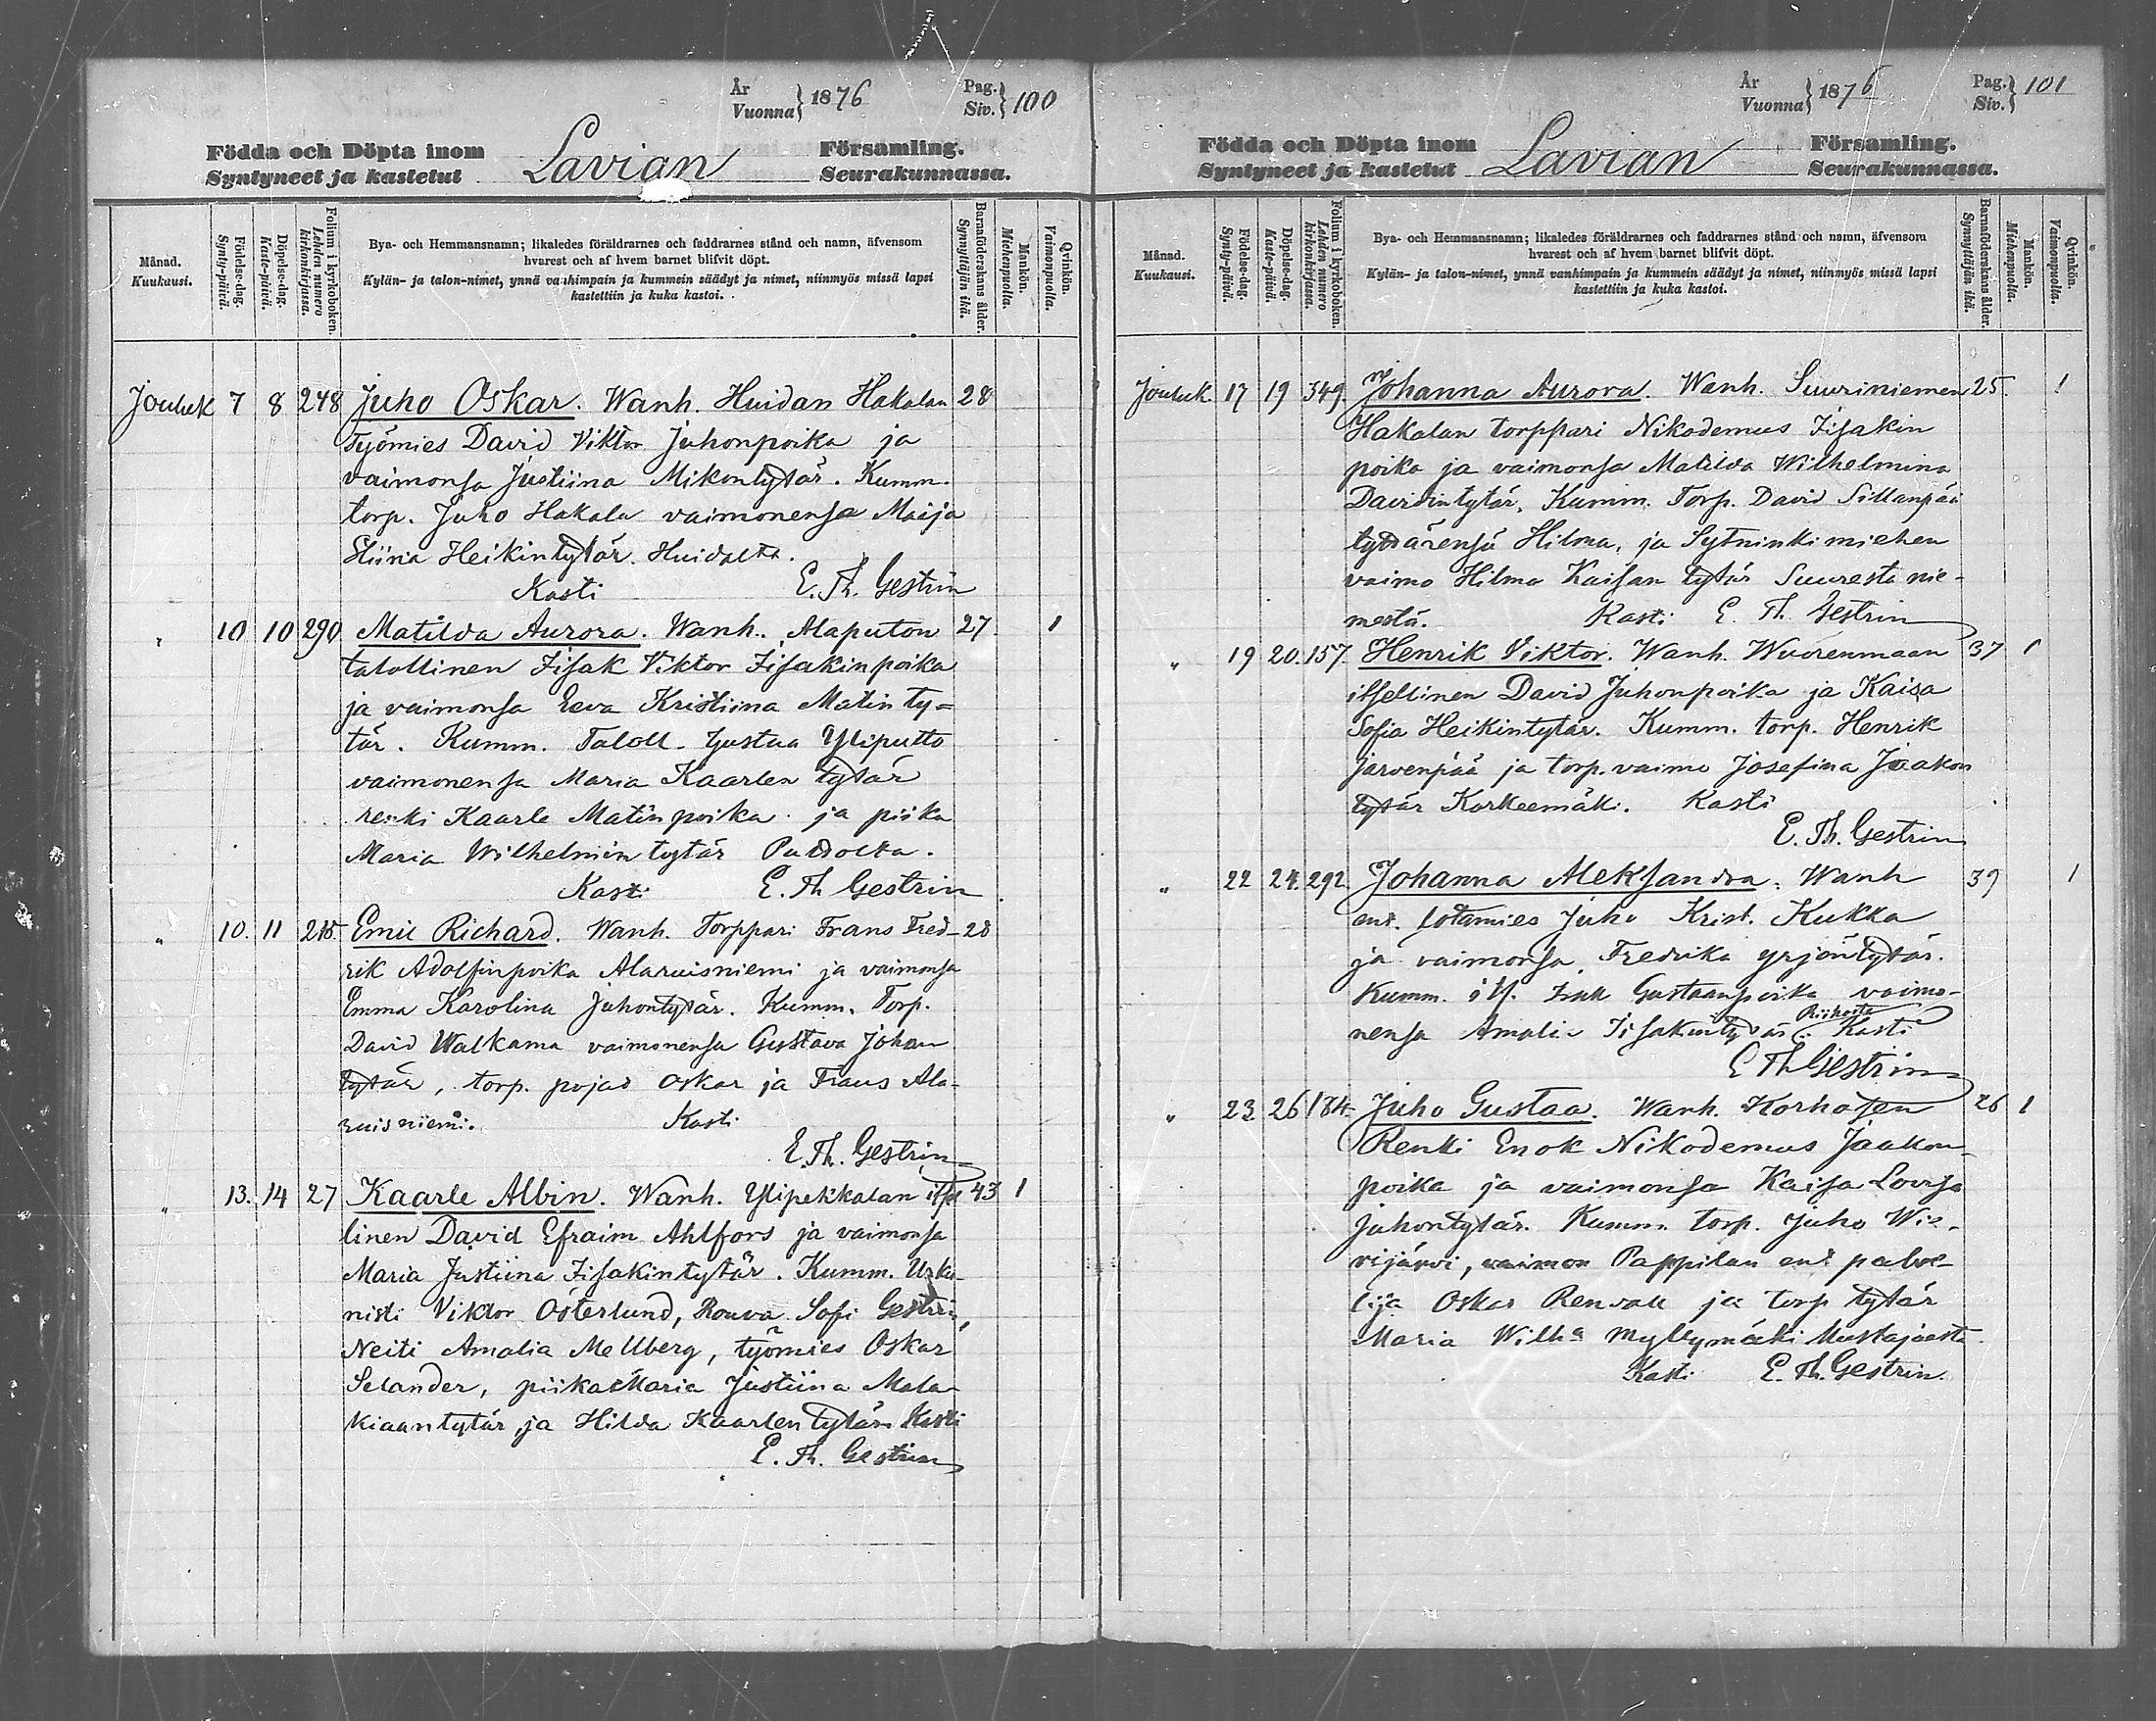 År
Vuonna } 1876
Pag.
Siv. } 100
Födda och Döpta inom
Syntyneet ja kastetut
Lavian
Församling.
Seurakunnassa.
Månad.
Kuukausi.
Födelse-dag.
Synty-päivä.
Döpelse-dag.
Kaste-päivä.
Folium i kyrkoboken.
Lehden numero kirkonkirjassa.
Bya- och Hemmansnamn; likaledes föräldrarnes och faddrarnes stånd och namn, äfvensom
hvarest och af hvem barnet blifvit döpt.
Kylän- ja talon-nimet, ynnä vanhimpain ja kummein säädyt ja nimet, niinmyös missä lapsi
kastettiin ja kuka kastoi.
Barnaföderskans ålder.
Synnyttäjän ikä.
Mankön.
Miehenpuolia.
Qvinkön.
Vaimonpuolia.
Jouluk 7 8 248 Juho Oskar. Wanh. Huidan Hakalan 28
Työmies David Viktor Juhonpoika ja
vaimonsa Justiina Mikontytär. Kumm.
torp. Juho Hakala vaimonensa Maija
Stiina Heikintytär. Huidalta.
Kasti E. Th. Gestrin
" 10 10 290 Matilda Aurora. Wanh. Alaputon 27 1
talollinen Iisak Viktor Iisakinpoika
ja vaimonsa Eeva Kristiina Matin ty=
tär. Kumm. Taloll. Gustaa Yliputto
vaimonensa Maria Kaarlen tytär
renki Kaarle Matinpoika ja piika
Maria Wilhelmin tytär Putolta.
Kasti E. Th Gestrin
" 10. 11 215 Emil Richard. Wanh. Torppari Frans Fred- 28
rik Adolfinpoika Alaruisniemi ja vaimonsa
Emma Karolina Juhontytär. Kumm. Torp.
David Walkama vaimonensa Gustava Johan
tytär, torp. pojad Oskar ja Frans Ala-
ruisniemi. Kasti
E. Th. Gestrin
" 13. 14 27 Kaarle Albin. Wanh. Ylipekkalan itsel 43 1
linen David Efraim Ahlfors ja vaimonsa
Maria Justiina Iisakintytär. Kumm. Urku-
nisti Viktor Österlund, Rouva Sofi Gestrin,
Neiti Amalia Mellberg, työmies Oskar
Selander, piika Maria Justiina Mala-
kiaantytär, ja Hilda Kaarlen tytär. Kasti
E. Th. Gestrin
År
Vuonna } 1876
Pag.
Siv. } 101
Födda och Döpta inom
Syntyneet ja kastetut
Lavian
Församling.
Seurakunnassa.
Månad.
Kuukausi.
Födelse-dag.
Synty-päivä.
Döpelse-dag.
Kaste-päivä.
Folium i kyrkoboken.
Lehden numero kirkonkirjassa.
Bya- och Hemmansnamn; likaledes föräldrarnes och faddrarnes stånd och namn, äfvensom
hvarest och af hvem barnet blifvit döpt.
Kylän- ja talon-nimet, ynnä vanhimpain ja kummein säädyt ja nimet, niinmyös missä lapsi
kastettiin ja kuka kastoi.
Barnaföderskans ålder.
Synnyttäjän ikä.
Mankön.
Miehenpuolia.
Qvinkön.
Vaimonpuolia.
Jouluk. 17 19 349. Johanna Aurora. Wanh. Suuriniemen 25. 1
Hakalan torppari Nikodemus Iisakin
poika ja vaimonsa Matilda Wilhelmina
Davidintytär. Kumm. Torp. David Sillanpää
tyttärensä Hilma, ja Sytninkimiehen
vaimo Hilma Kaisan tytär Suuresta nie-
mestä. Kasti E. Th. Gestrin
" 19 20. 157. Henrik Viktor. Wanh. Wuorenmaan 37 1
itsellinen David Juhonpoika ja Kaisa
Sofia Heikintytär. Kumm. torp. Henrik
Järvenpää ja torp. vaimo Josefina Jaakon
tytär Korkeemäki. Kasti
E. Th. Gestrin
" 22 24. 292. Johanna Aleksandra. Wanh 39 1
ent. sotamies Juho Krist. Kukka
ja vaimonsa Fredrika Yrjöntytär.
Kumm. its. Isak Gustaanpoika vaimo-
nensa Amalia Iisakintytär Riihosta Kasti
E Th Gestrin
" 23. 26 184. Juho Gustaa. Wanh. Korhosen 26 1
Renki Enok Nikodemus Jaakon-
poika ja vaimonsa Kaisa Lovisa
Juhontytär. Kumm. torp. Juho Wie-
rijärvi, vaimon Pappilan ent palve-
lija Oskar Renvall ja torp tytär
Maria Wilh:a Myllymäki Mustajoesta.
Kasti E. Th. Gestrin.